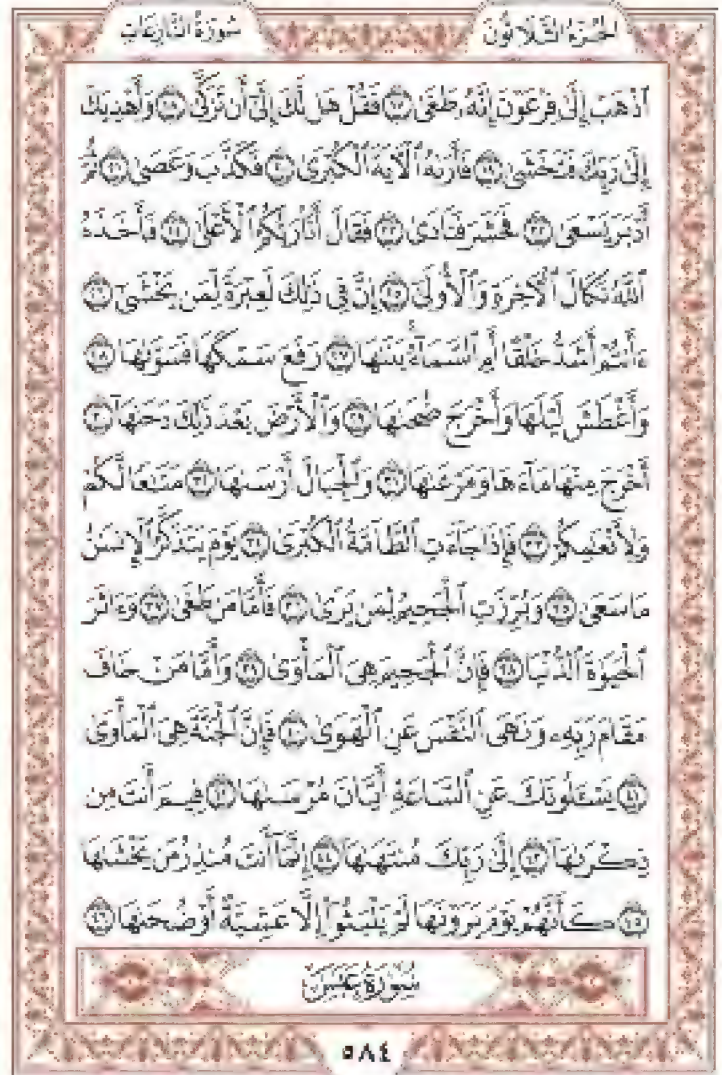 الجُزءُ الثَّلَاثُونَ
سُورَةُ النَّازِعَاتِ
ٱذۡهَبۡ إِلَىٰ فِرۡعَوۡنَ إِنَّهُۥ طَغَىٰ ١٧ فَقُلۡ هَل لَّكَ إِلَىٰٓ أَن تَزَكَّىٰ ١٨ وَأَهۡدِيَكَ
إِلَىٰ رَبِّكَ فَتَخۡشَىٰ ١٩ فَأَرَىٰهُ ٱلۡأٓيَةَ ٱلۡكُبۡرَىٰ ٢٠ فَكَذَّبَ وَعَصَىٰ ٢١ ثُمَّ
أَدۡبَرَ يَسۡعَىٰ ٢٢ فَحَشَرَ فَنَادَىٰ ٢٣ فَقَالَ أَنَا۠ رَبُّكُمُ ٱلۡأَعۡلَىٰ ٢٤ فَأَخَذَهُ
ٱللَّهُ نَكَالَ ٱلۡأٓخِرَةِ وَٱلۡأُولَىٰٓ ٢٥ إِنَّ فِي ذَٰلِكَ لَعِبۡرَةٗ لِّمَن يَخۡشَىٰٓ ٢٦
ءَأَنتُمۡ أَشَدُّ خَلۡقًا أَمِ ٱلسَّمَآءُۚ بَنَىٰهَا ٢٧ رَفَعَ سَمۡكَهَا فَسَوَّىٰهَا ٢٨
وَأَغۡطَشَ لَيۡلَهَا وَأَخۡرَجَ ضُحَىٰهَا ٢٩ وَٱلۡأَرۡضَ بَعۡدَ ذَٰلِكَ دَحَىٰهَآ ٣٠
أَخۡرَجَ مِنۡهَا مَآءَهَا وَمَرۡعَىٰهَا ٣١ وَٱلۡجِبَالَ أَرۡسَىٰهَا ٣٢ مَتَٰعٗا لَّكُمۡ
وَلِأَنۡعَٰمِكُمۡ ٣٣ فَإِذَا جَآءَتِ ٱلطَّآمَّةُ ٱلۡكُبۡرَىٰ ٣٤ يَوۡمَ يَتَذَكَّرُ ٱلۡإِنسَٰنُ
مَا سَعَىٰ ٣٥ وَبُرِّزَتِ ٱلۡجَحِيمُ لِمَن يَرَىٰ ٣٦ فَأَمَّا مَن طَغَىٰ ٣٧ وَءَاثَرَ
ٱلۡحَيَوٰةَ ٱلدُّنۡيَا ٣٨ فَإِنَّ ٱلۡجَحِيمَ هِيَ ٱلۡمَأۡوَىٰ ٣٩ وَأَمَّا مَنۡ خَافَ
مَقَامَ رَبِّهِۦ وَنَهَى ٱلنَّفۡسَ عَنِ ٱلۡهَوَىٰ ٤٠ فَإِنَّ ٱلۡجَنَّةَ هِيَ ٱلۡمَأۡوَىٰ
٤١ يَسۡـَٔلُونَكَ عَنِ ٱلسَّاعَةِ أَيَّانَ مُرۡسَىٰهَا ٤٢ فِيمَ أَنتَ مِن
ذِكۡرَىٰهَآ ٤٣ إِلَىٰ رَبِّكَ مُنتَهَىٰهَآ ٤٤ إِنَّمَآ أَنتَ مُنذِرُ مَن يَخۡشَىٰهَا
٤٥ كَأَنَّهُمۡ يَوۡمَ يَرَوۡنَهَا لَمۡ يَلۡبَثُوٓاْ إِلَّا عَشِيَّةً أَوۡ ضُحَىٰهَا ٤٦
سُورَةُ عَبَسَ
٥٨٤